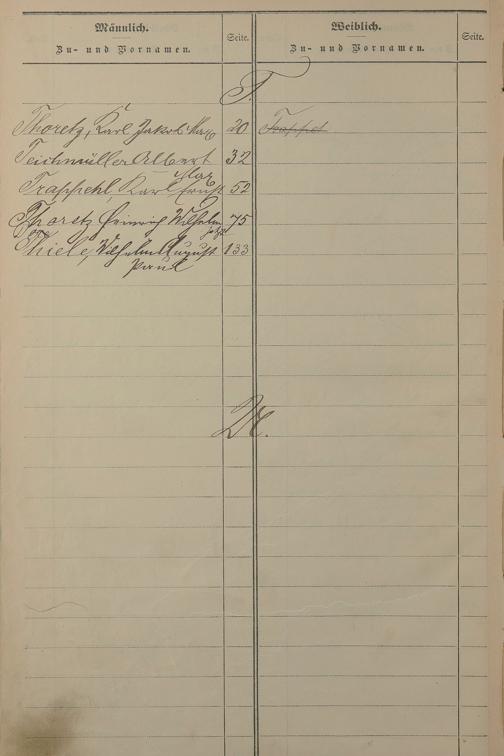 Männlich.
Zu- und Vornamen.
Seite.
Weiblich.
Zu- und Vornamen.
Seite.
T.
Thoretz, Karl Jakob Max 20
Trappet
Teichmüller Albert 32
Max
Trappehl, Karl Ernst 52
Thoretz Heinrich Wilhelm 75
Thiele, Wilhelm August 133
Paul